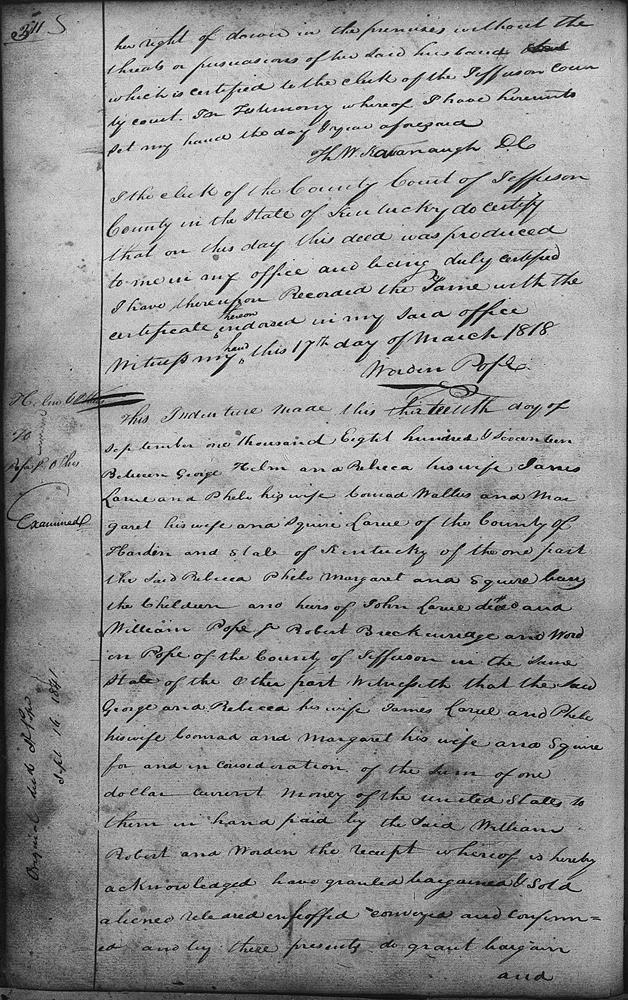 her right of dower in the premises without the
threats or persuasions of her said husband
which is certified to the clerk of the Jefferson Coun
ty court. In Testimony whereof I have hereunto
set my hand the day & year aforesaid
Th W. Kavanaugh D.C.
I the clerk of the County Court of Jefferson
County in the State of Kentucky do certify
that on this day this deed was produced
to me in my office and being duly certified
I have thereupon Recorded the Same with the
certificate thereon indorsed in my said office
Witness my hand this 17th day of March 1818
Worden Pope
Helm & Others
to
Pope & Others
Examined
This Indenture made this thirteenth day of
September one thousand Eight hundred & Seventeen
Between George Helm and Rebecca his wife James
Larue and Phebe his wife Conrad Walters and Mar
garet his wife and Squire Larue of the County of
Hardin and State of Kentucky of the one part
the Said Rebecca Phebe Margaret and Squire being
the Children and heirs of John Larue decd and
William Pope Jr Robert Breckenridge and Word
en Pope of the County of Jefferson in the Same
State of the Other part Witnesseth that the Said
George and Rebecca his wife James Larue and Phebe
his wife Conrad and Margaret his wife and Squire
for and in consideration of the sum of one
dollar current money of the united States to
them in hand paid by the Said William
Robert and Worden the receipt whereof is hereby
acknowledged have granted bargained & Sold
aliened released enfeoffed conveyed and confirm=
ed and by these presents do grant bargain
and
Original
Sept 16 1841